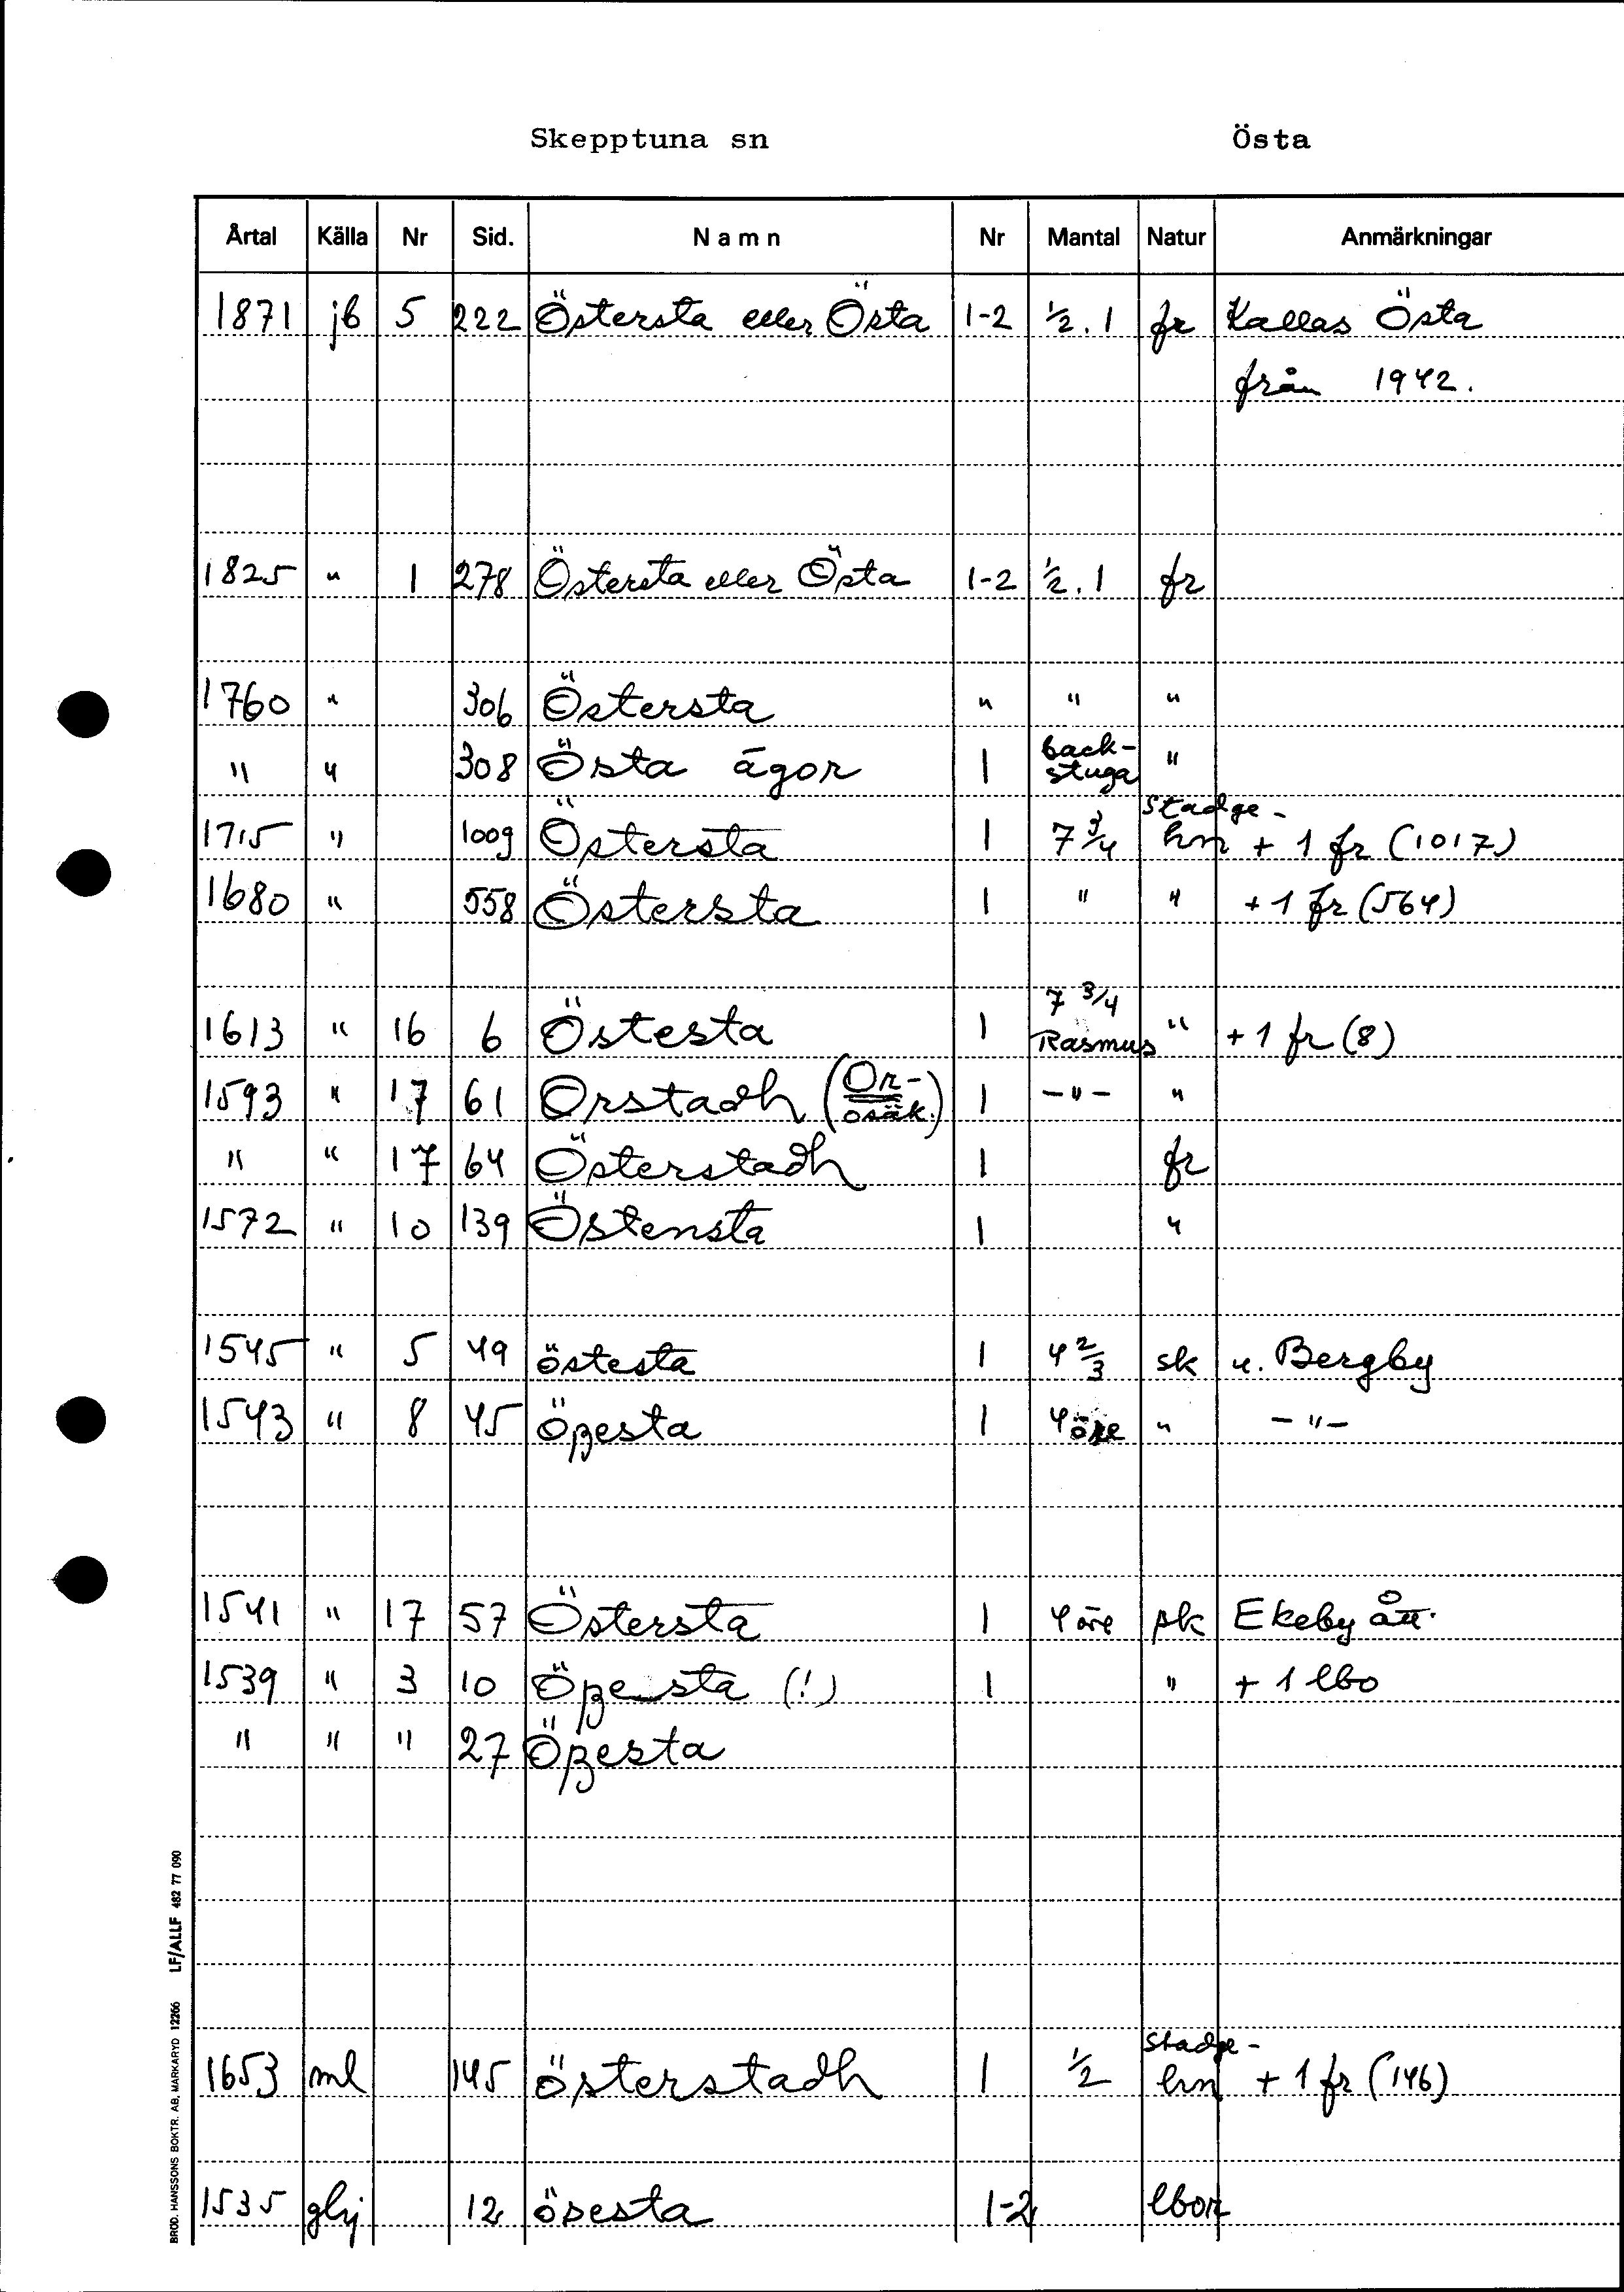 Skepptuna sn Östa
Årtal Källa Nr Sid. Namn Nr Mantal Natur Anmärkningar
1871 jb 5 222 Östersta eller Östa 1-2 ½. 1 fr Kallas Östa
från 1942.
1825 " 1 278 Östersta eller Östa 1-2 ½. 1 fr
1760 " 306 Östersta " " "
" " 308 Östa ägor 1 back-stuga "
1715 " 1009 Östersta 1 7 3/4 Stadge-hm + 1 fr (1017)
1680 " 558 Östersta 1 " " + 1 fr (564)
1613 " 16 6 Östesta 1 7 3/4 Rasmus " + 1 fr (8)
1593 " 17 61 Orstadh (Or- osäk.) 1 -"- "
" " 17 64 Österstadh 1 fr
1572 " 10 139 Östensta 1 "
1545 " 5 49 östesta 1 4 2/3 sk u. Bergby
1543 " 8 45 Ößesta 1 4 öre " -"-
1541 " 17 57 Östersta 1 4 öre sk Ekeby ått.
1539 " 3 10 Öße sta (!) 1 " + 1 lbo
" " " 27 Ößesta
1653 ml 145 österstadh 1 ½ Stadge-hm + 1 fr (146)
1535 glrj 12 ösesta 1-2 lbor
BRÖD. HANSSONS BOKTR. AB, MARKARYD 12266 LF/ALLF 482 77 090